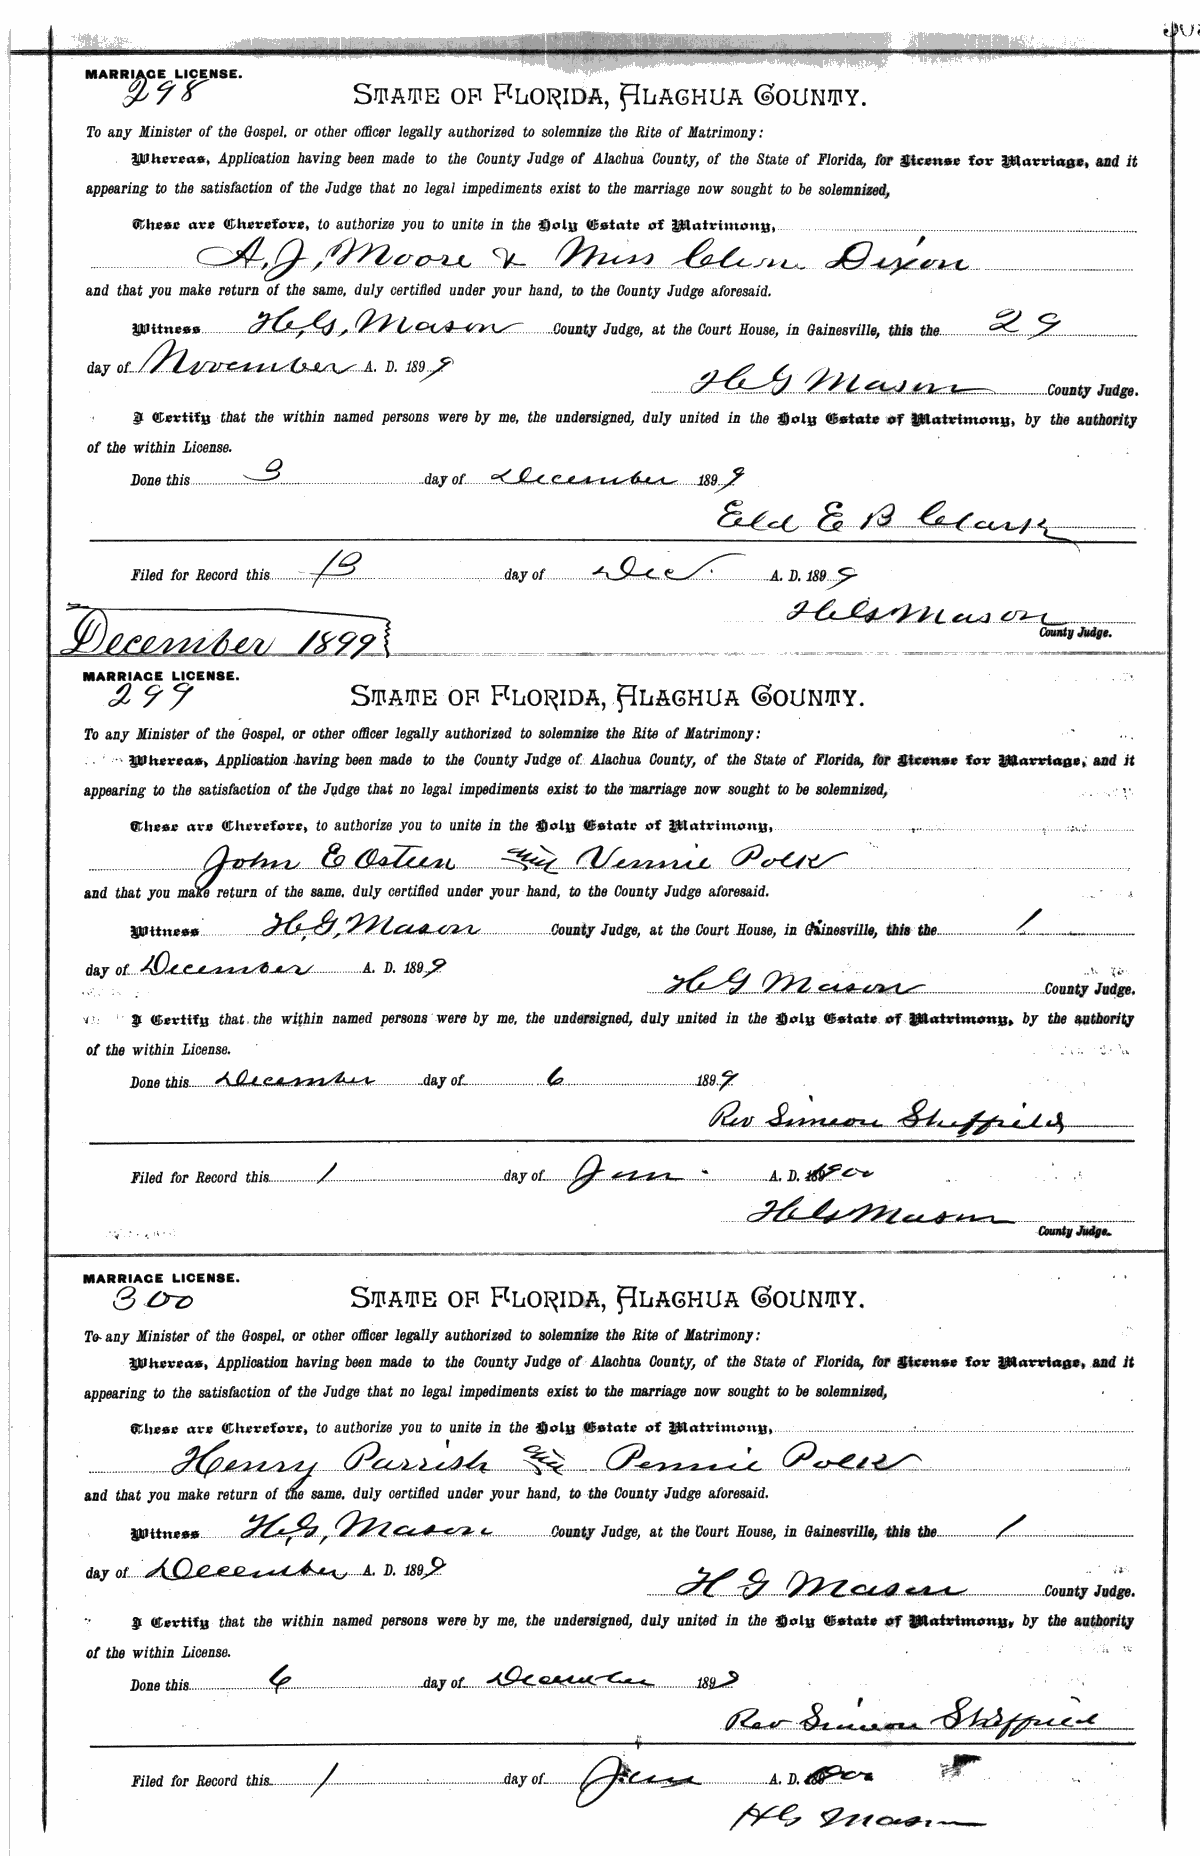 MARRIAGE LICENSE.
298
STATE OF FLORIDA, ALACHUA COUNTY.
To any Minister of the Gospel, or other officer legally authorized to solemnize the Rite of Matrimony:
Whereas, Application having been made to the County Judge of Alachua County, of the State of Florida, for License for Marriage, and it
appearing to the satisfaction of the Judge that no legal impediments exist to the marriage now sought to be solemnized,
These are Therefore, to authorize you to unite in the Holy Estate of Matrimony,
A, J, Moore & Miss Dixon
and that you make return of the same, duly certified under your hand, to the County Judge aforesaid.
Witness H, G, Mason County Judge, at the Court House, in Gainesville, this the 29
day of November A. D. 1899
H G Mason County Judge.
I Certify that the within named persons were by me, the undersigned, duly united in the Holy Estate of Matrimony, by the authority
of the within License.
Done this 3 day of December 1899
Eld E B Clark
Filed for Record this 13 day of Dec. A. D. 1899
H G Mason
County Judge.
December 1899
MARRIAGE LICENSE.
299
STATE OF FLORIDA, ALACHUA COUNTY.
To any Minister of the Gospel, or other officer legally authorized to solemnize the Rite of Matrimony:
Whereas, Application having been made to the County Judge of Alachua County, of the State of Florida, for License for Marriage, and it
appearing to the satisfaction of the Judge that no legal impediments exist to the marriage now sought to be solemnized,
These are Therefore, to authorize you to unite in the Holy Estate of Matrimony,
John E Osteen Vennie Polk
and that you make return of the same, duly certified under your hand, to the County Judge aforesaid.
Witness H, G, Mason County Judge, at the Court House, in Gainesville, this the 1
day of December A. D. 1899
H G Mason County Judge.
I Certify that the within named persons were by me, the undersigned, duly united in the Holy Estate of Matrimony, by the authority
of the within License.
Done this December day of 6 1899
Rev Simeon Sheffield
Filed for Record this 1 day of Jan. A. D. 1900
H G Mason
County Judge.
MARRIAGE LICENSE.
300
STATE OF FLORIDA, ALACHUA COUNTY.
To any Minister of the Gospel, or other officer legally authorized to solemnize the Rite of Matrimony:
Whereas, Application having been made to the County Judge of Alachua County, of the State of Florida, for License for Marriage, and it
appearing to the satisfaction of the Judge that no legal impediments exist to the marriage now sought to be solemnized,
These are Therefore, to authorize you to unite in the Holy Estate of Matrimony,
Henry Parrish Pennie Polk
and that you make return of the same, duly certified under your hand, to the County Judge aforesaid.
Witness H, G, Mason County Judge, at the Court House, in Gainesville, this the 1
day of December A. D. 1899
H G Mason County Judge.
I Certify that the within named persons were by me, the undersigned, duly united in the Holy Estate of Matrimony, by the authority
of the within License.
Done this 6 day of December 1899
Rev Simeon Sheffield
Filed for Record this 1 day of Jan A. D. 1900
H G Mason